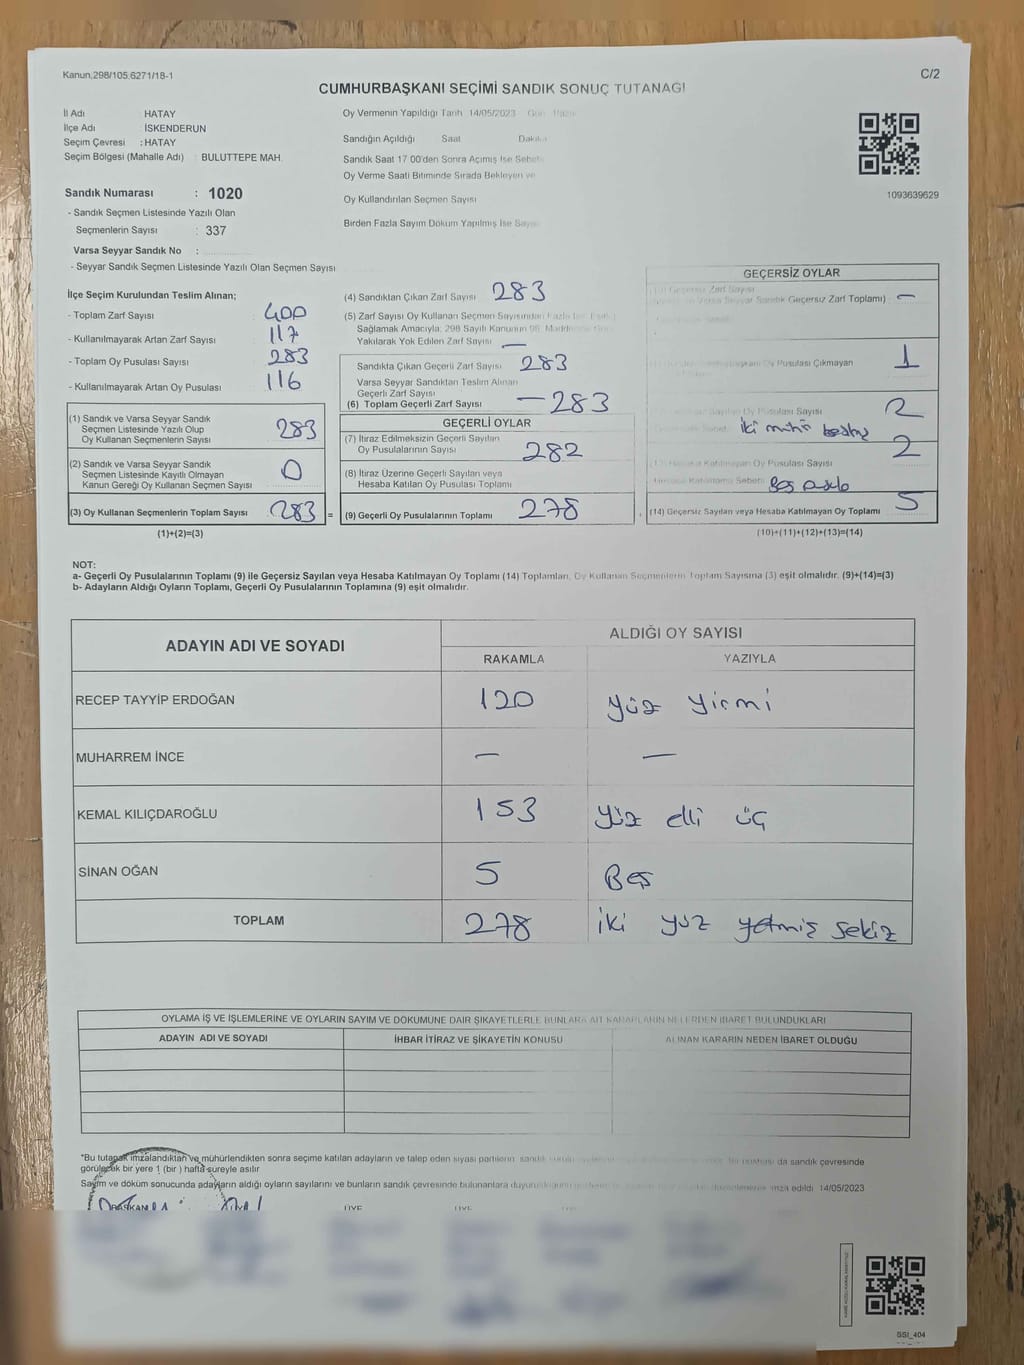 Kanun,298/105,6271/18-1
C/2
CUMHURBAŞKANI SEÇİMİ SANDIK SONUÇ TUTANAĞI
İl Adı HATAY
İlçe Adı İSKENDERUN
Seçim Çevresi : HATAY
Seçim Bölgesi (Mahalle Adı) : BULUTTEPE MAH.
Sandık Numarası : 1020
- Sandık Seçmen Listesinde Yazılı Olan
Seçmenlerin Sayısı : 337
Varsa Seyyar Sandık No :
- Seyyar Sandık Seçmen Listesinde Yazılı Olan Seçmen Sayısı
Oy Vermenin Yapıldığı Tarih 14/05/2023 Gün Pazar
Sandığın Açıldığı Saat Dakika
Sandık Saat 17 00'den Sonra Açımış İse Sebebi
Oy Verme Saati Bitiminde Sırada Bekleyen ve
Oy Kullandırılan Seçmen Sayısı
Birden Fazla Sayım Döküm Yapılmış İse Sayısı
1093639629
İlçe Seçim Kurulundan Teslim Alınan;
- Toplam Zarf Sayısı 400
- Kullanılmayarak Artan Zarf Sayısı 117
- Toplam Oy Pusulası Sayısı 283
- Kullanılmayarak Artan Oy Pusulası 116
(1) Sandık ve Varsa Seyyar Sandık
Seçmen Listesinde Yazılı Olup
Oy Kullanan Seçmenlerin Sayısı 283
(2) Sandık ve Varsa Seyyar Sandık
Seçmen Listesinde Kayıtlı Olmayan
Kanun Gereği Oy Kullanan Seçmen Sayısı 0
(3) Oy Kullanan Seçmenlerin Toplam Sayısı 283 =
(1)+(2)=(3)
(4) Sandıktan Çıkan Zarf Sayısı 283
(5) Zarf Sayısı Oy Kullanan Seçmen Sayısından Fazla İse
Sağlamak Amacıyla, 298 Sayılı Kanunun 98. Maddesine
Yakılarak Yok Edilen Zarf Sayısı —
Sandıkta Çıkan Geçerli Zarf Sayısı 283
Varsa Seyyar Sandıktan Teslim Alınan
Geçerli Zarf Sayısı —
(6) Toplam Geçerli Zarf Sayısı 283
GEÇERLİ OYLAR
(7) İtiraz Edilmeksizin Geçerli Sayılan
Oy Pusulalarının Sayısı 282
(8) İtiraz Üzerine Geçerli Sayılan veya
Hesaba Katılan Oy Pusulası Toplamı
(9) Geçerli Oy Pusulalarının Toplamı 278
GEÇERSİZ OYLAR
Geçersiz Zarf Sayısı
Varsa Seyyar Sandık Geçersiz Zarf Toplamı) —
Oy Pusulası Çıkmayan 1
Sayılan Oy Pusulası Sayısı 2
İki mühür
Hesaba Katılmayan Oy Pusulası Sayısı 2
Hesaba Katılmama Sebebi Boş pusula
(14) Geçersiz Sayılan veya Hesaba Katılmayan Oy Toplamı 5
(10)+(11)+(12)+(13)=(14)
NOT:
a- Geçerli Oy Pusulalarının Toplamı (9) ile Geçersiz Sayılan veya Hesaba Katılmayan Oy Toplamı (14) Toplamları, Oy Kullanan Seçmenlerin Toplam Sayısına (3) eşit olmalıdır. (9)+(14)=(3)
b- Adayların Aldığı Oyların Toplamı, Geçerli Oy Pusulalarının Toplamına (9) eşit olmalıdır.
ADAYIN ADI VE SOYADI ALDIĞI OY SAYISI
RAKAMLA YAZIYLA
RECEP TAYYİP ERDOĞAN 120 yüz yirmi
MUHARREM İNCE — —
KEMAL KILIÇDAROĞLU 153 yüz elli üç
SİNAN OĞAN 5 Beş
TOPLAM 278 iki yüz yetmiş sekiz
OYLAMA İŞ VE İŞLEMLERİNE VE OYLARIN SAYIM VE DÖKÜMÜNE DAİR ŞİKAYETLERLE BUNLARA AİT KARARLARIN NELERDEN İBARET BULUNDUKLARI
ADAYIN ADI VE SOYADI İHBAR İTİRAZ VE ŞİKAYETİN KONUSU ALINAN KARARIN NEDEN İBARET OLDUĞU
*Bu tutanak imzalandıktan ve mühürlendikten sonra seçime katılan adayların ve talep eden siyasi partilerin sandık da sandık çevresinde
görülecek bir yere 1 (bir ) hafta süreyle asılır
Sayım ve döküm sonucunda adayların aldığı oyların sayılarını ve bunların sandık çevresinde bulunanlara imza edildi 14/05/2023
BAŞKAN ÜYE ÜYE ÜYE
SSI_404